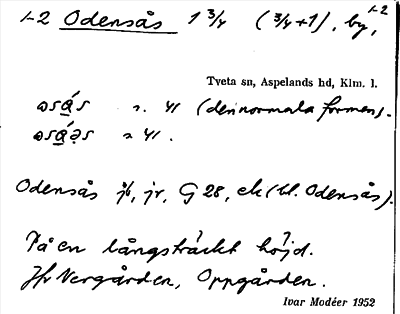 1-2 Odensås 1 3/4 (3/4+1), by, 1-2
Tveta sn, Aspelands hd, Klm. l.
(den normala formen).
Odensås jb, jr, G 28, ek (bl. Odensås).
På en långsträckt höjd.
Jfr Nergården, Oppgården.
Ivar Modéer 1952